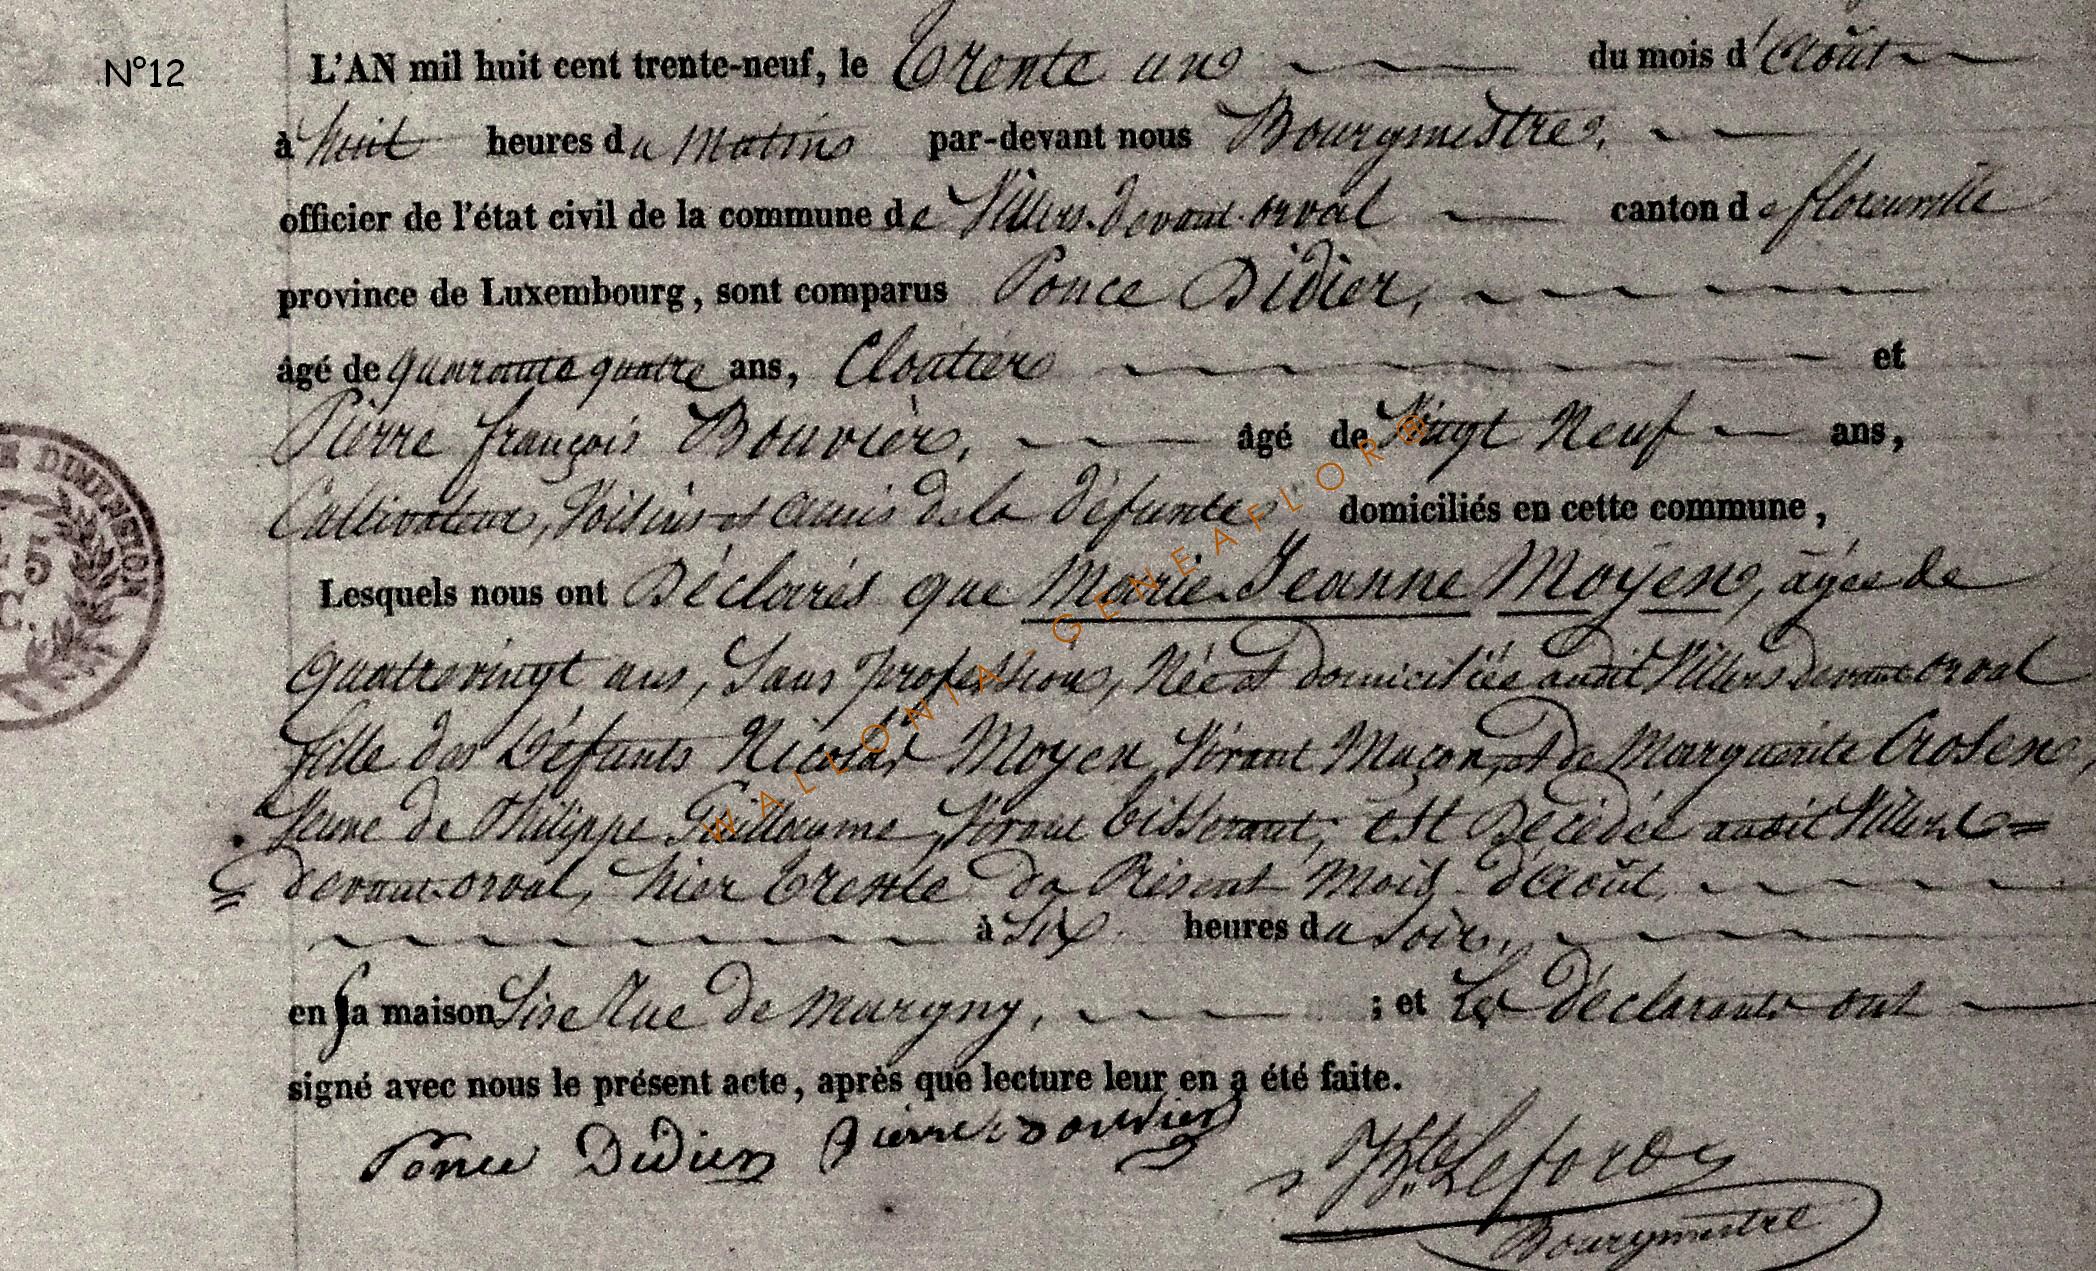 N°12
L'AN mil huit cent trente-neuf, le Trente un du mois d'Août
à huit heures du Matin par-devant nous Bourgmestre,
officier de l'état civil de la commune de Villers-devant-orval canton de florenville
province de Luxembourg, sont comparus Ponce Didier,
âgé de quarante quatre ans, Cloutier et
Pierre françois Bouvier, âgé de Vingt Neuf ans,
Cultivateur, Voisins et amis de la défunte domiciliés en cette commune,
Lesquels nous ont Déclarés que Marie-Jeanne Moyen, âgée de
quatrevingt ans, Sans profession, Née et domiciliée audit Villers devant orval
fille des Défunts Nicolas Moyen, Vivant Maçon, et de Marguerite Crosen,
Veuve de Philippe Guillaume, Vivant tisserant, est Décédée audit Villers
devant-orval, hier trente du Présent Mois d'Août,
à Six heures du Soir,
en sa maison Sise Rue de Margny, ; et Les déclarants ont
signé avec nous le présent acte, après que lecture leur en a été faite.
Ponce Didier Pierre Bouvier
Bourgmestre
E DIMENSION
5
C.
WALLONIA-GENEAFLOR®